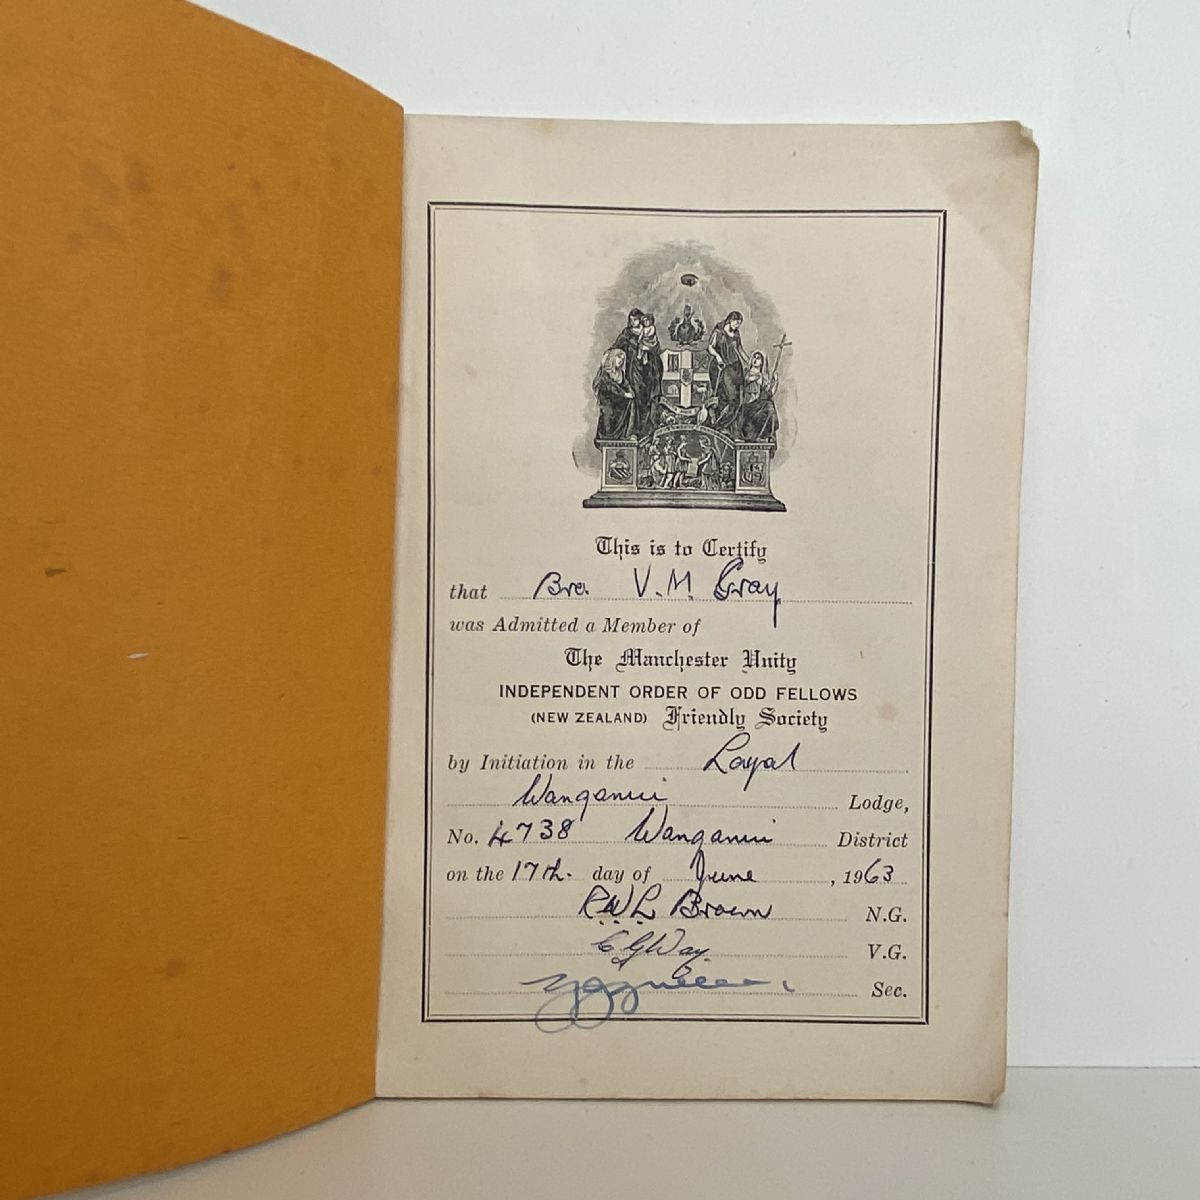 This is to Certify
that Bro. V. M. Gray
was Admitted a Member of
The Manchester Unity
INDEPENDENT ORDER OF ODD FELLOWS
(NEW ZEALAND) Friendly Society
by Initiation in the Loyal
Wanganui Lodge,
No. 4738 Wanganui District
on the 17th. day of June, 1963
R.W.L. Brown N.G.
C G Way V.G.
Sec.